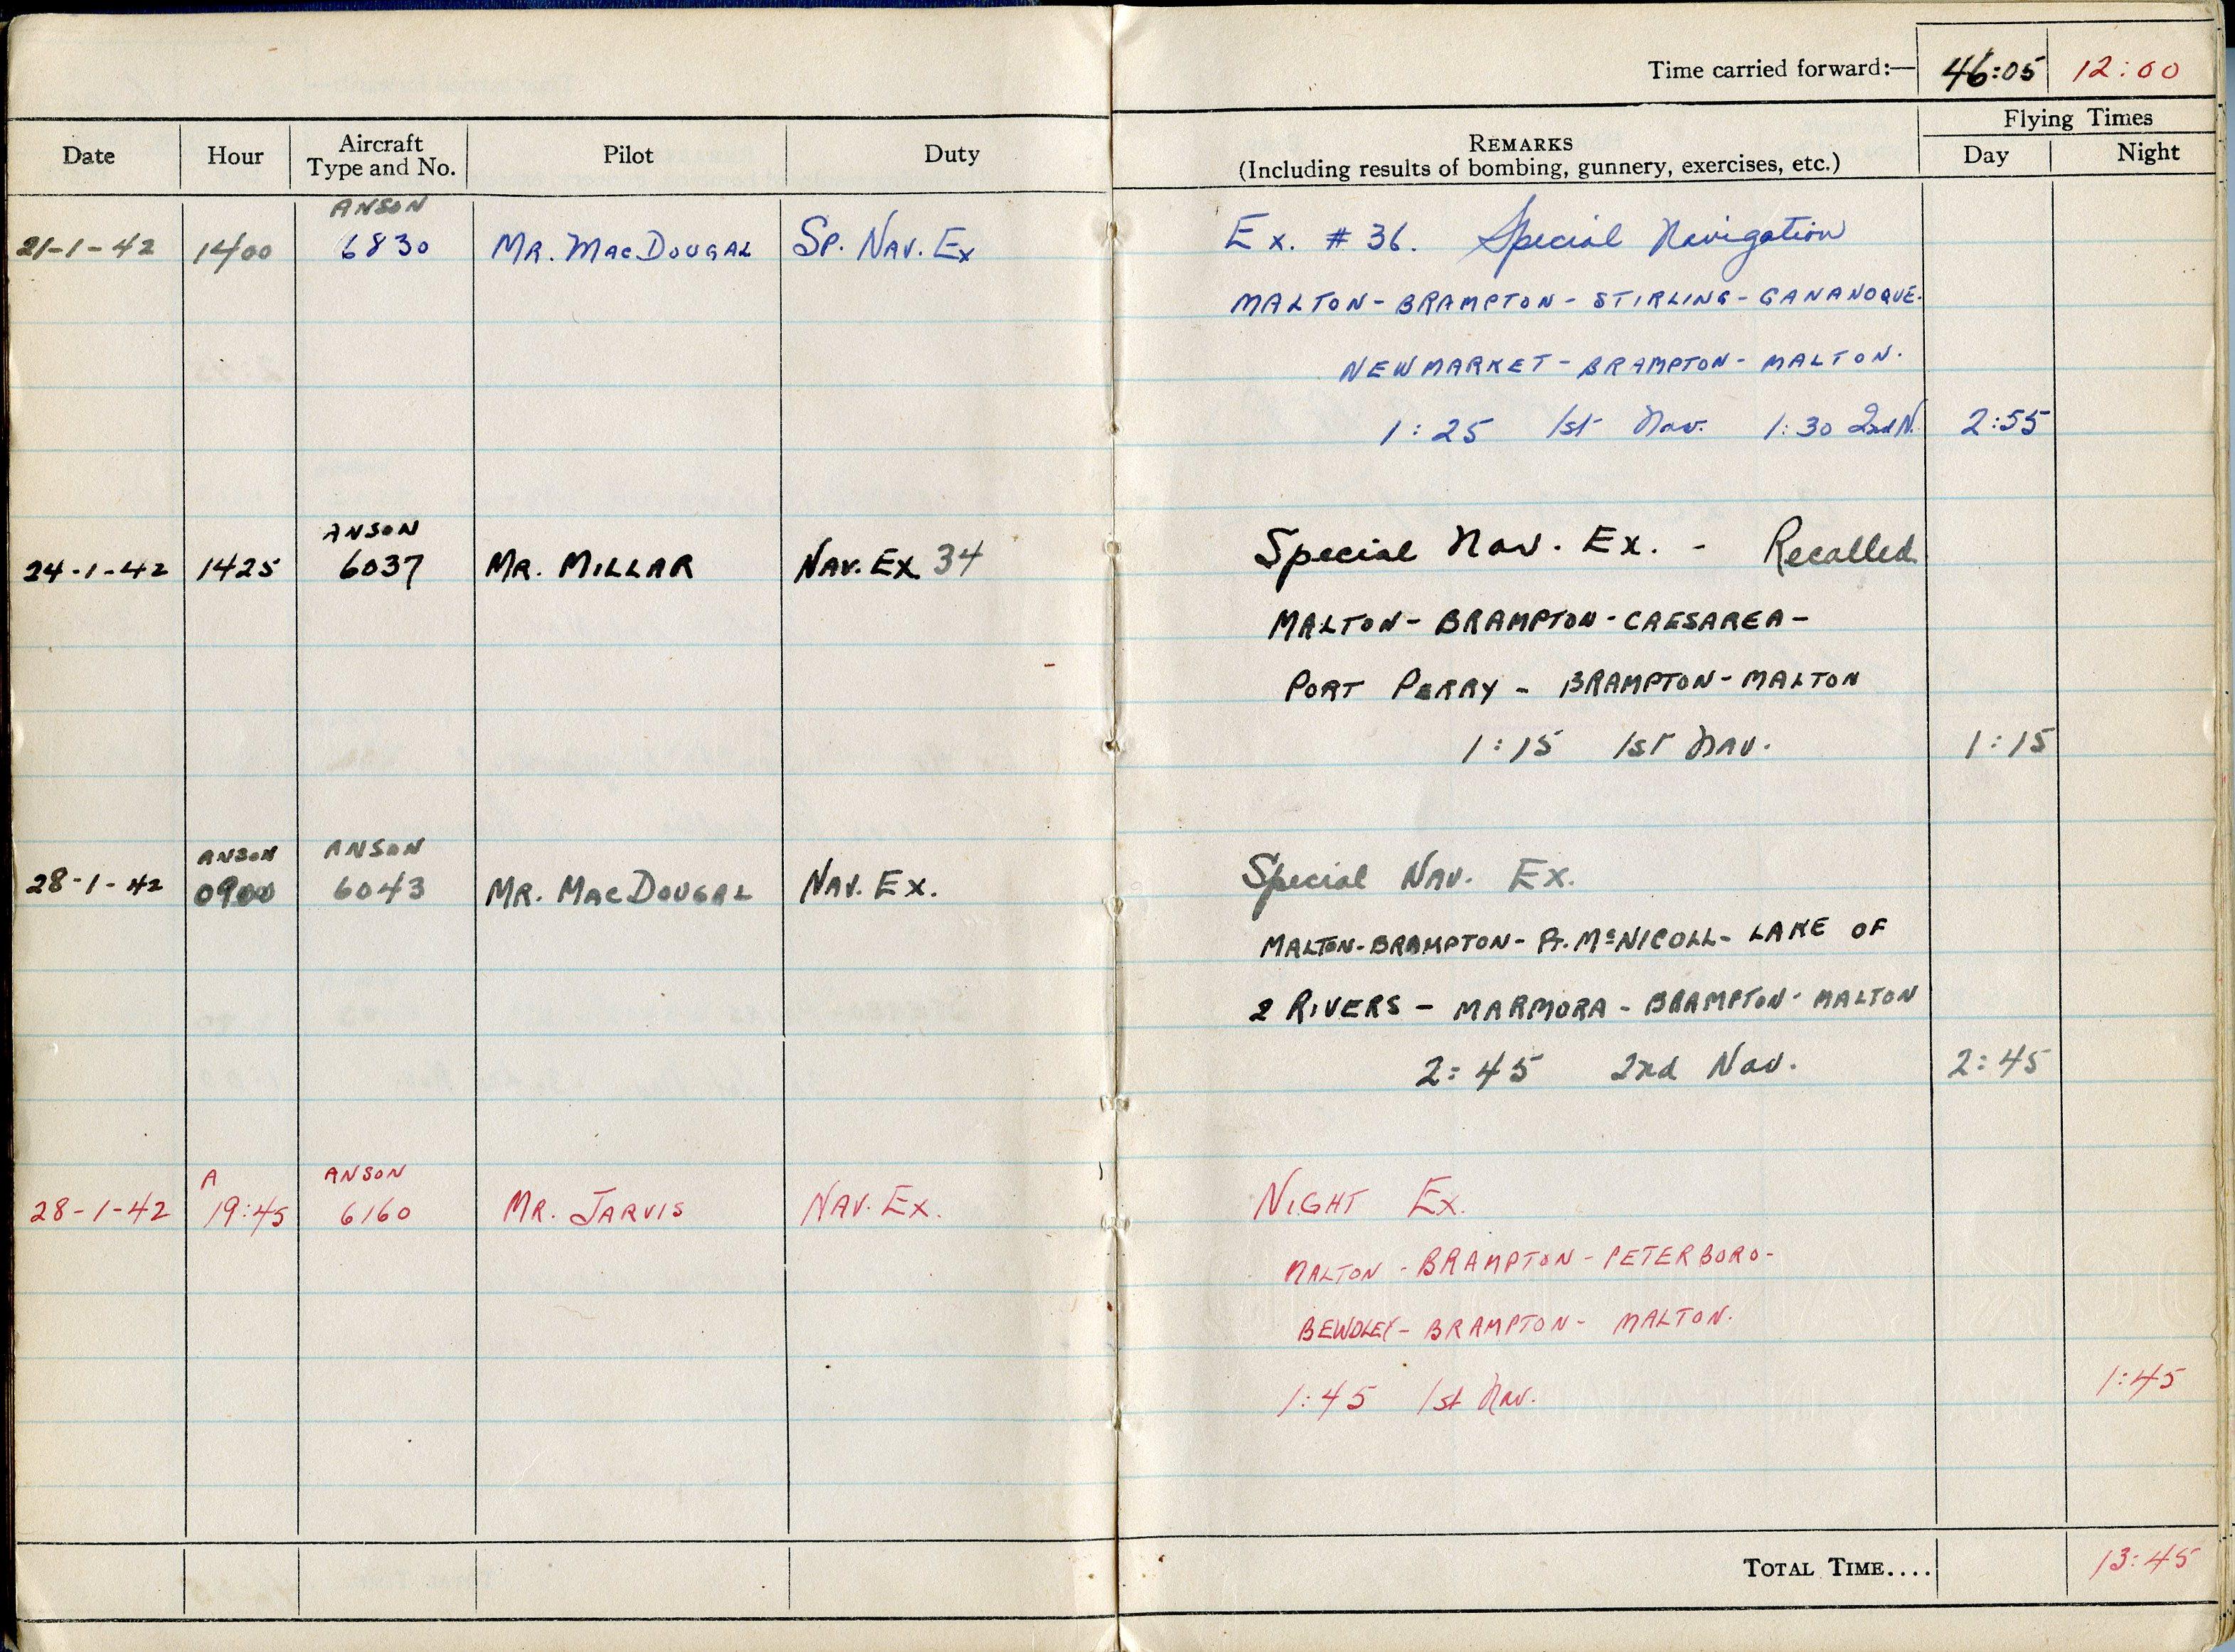 Time carried forward:— 46:05 12:00
Date Hour Aircraft Type and No. Pilot Duty REMARKS (Including results of bombing, gunnery, exercises, etc.) Flying Times Day Night
ANSON
21-1-42 1400 6830 MR. MACDOUGAL SP. NAV. EX Ex. # 36. Special Navigation
MALTON - BRAMPTON - STIRLING - GANANOQUE.
NEWMARKET - BRAMPTON - MALTON.
1:25 1st Nav. 1:30 2nd N. 2:55
ANSON
24-1-42 1425 6037 MR. MILLAR NAV. EX 34 Special Nav. Ex. - Recalled
MALTON - BRAMPTON - CAESAREA -
PORT PERRY - BRAMPTON - MALTON
1:15 1ST NAV. 1:15
ANSON ANSON
28-1-42 0900 6043 MR. MACDOUGAL NAV. EX. Special NAV. Ex.
MALTON - BRAMPTON - PT. McNICOLL - LAKE OF
2 RIVERS - MARMORA - BRAMPTON - MALTON
2:45 2nd Nav. 2:45
A ANSON
28-1-42 19:45 6160 MR. JARVIS NAV. EX. NIGHT EX.
MALTON - BRAMPTON - PETERBORO -
BEWDLEY - BRAMPTON - MALTON.
1:45 1st Nav. 1:45
TOTAL TIME.... 13:45